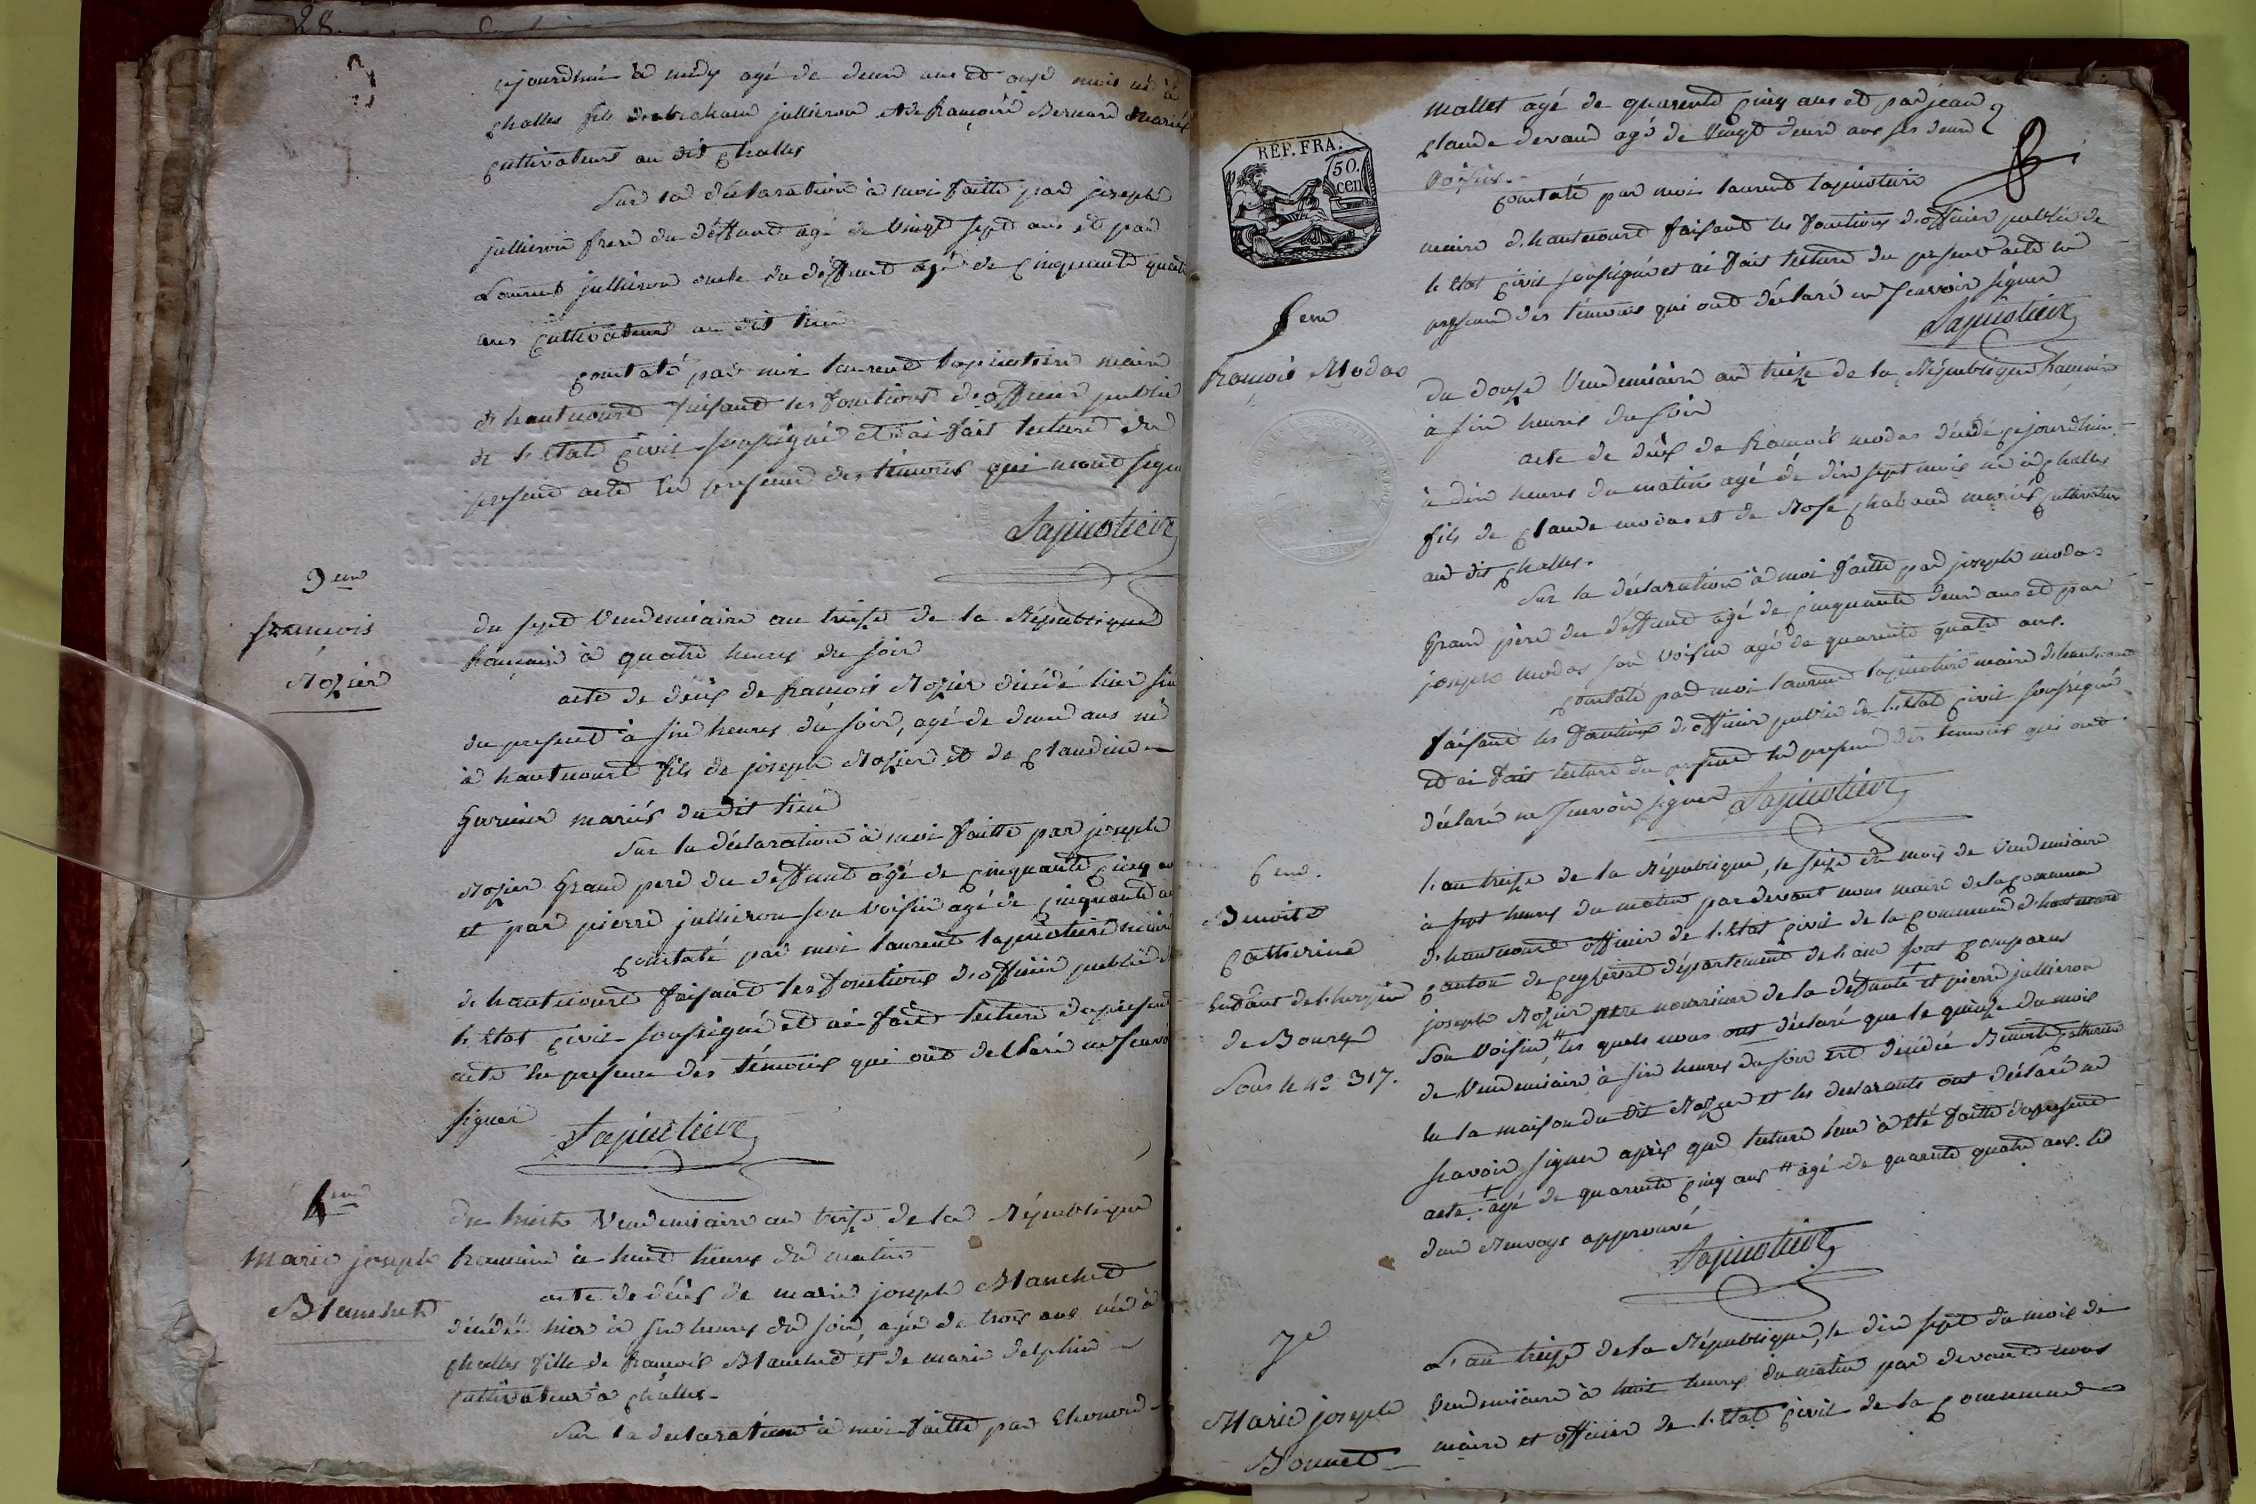 28
cejourdhui à midy agé de deux ans et onze mois né à
Challes fils d'abraham jullieron et de françoise Bernard mariés
cultivateurs au dit Challes
Sur la déclaration à moi faitte par joseph
jullieron frere du déffunt agé de vingt sept ans et par
Laurent jullieron oncle du déffunt agé de cinquante quatre
ans cultivateurs au dit lieu
constaté par moi laurent lapicotiere maire
d'hautecourt faisant les fonctions d'officier public
de l'etat civil soussigné et ai fait lecture du
present acte en presence des témoins qui n'ont signé
Lapicotiere
3eme
françois
Rozier
du sept Vendemiaire an treize de la République
française à quatre heures du soir
acte de décès de françois Rozier décédé hier six
du present à six heures du soir, agé de deux ans né
à hautecourt fils de joseph Rozier et de Claudine
Guerinier mariés du dit lieu
Sur la déclaration à moi faitte par joseph
Rozier Grand pere du deffunt agé de cinquante cinq ans
et par pierre jullieron son voisin agé de cinquante ans
constaté par moi laurent lapicotiere maire
de hautecourt faisant les fonctions d'officier public de
l'etat civil soussigné et ai fait lecture du present
acte en presence des témoins qui ont declaré ne scavoir
signer
Lapicotiere
4eme
Marie joseph
Blanchet
du huit Vendemiaire an treize de la République
française à huit heures du matin
acte de décès de marie joseph Blanchet
décédée hier à six heures du soir, agée de trois ans née à
Challes fille de françois Blanchet et de marie delphin
cultivateur à Challes
Sur la declaration à moi faitte par
mallet agé de quarente cinq ans et par jean
Claude devaud agé de vingt deux ans ses deux
voisins.
constaté par moi laurent lapicotiere
maire d'hautecourt faisant les fonctions d'officier public de
l'etat civil soussigné et ai fait lecture du present acte en
presence des témoins qui ont déclaré ne scavoir signer
Lapicotiere
REP. FRA.
50.
cen
5eme
françois Modas
du douze Vendemiaire an treize de la République française
à six heures du soir
acte de décès de françois modas décédé cejourdhui
à dix heures du matin agé de dix sept mois né à Challes
fils de Claude modas et de Rose Chaband mariés cultivateurs
au dit Challes.
Sur la déclaration à moi faitte par joseph modas
Grand père du déffunt agé de cinquante deux ans et par
joseph modas, son voisin agé de quarente quatre ans.
constaté par moi laurent lapicotiere maire d'hautecourt
faisant les fonctions d'officier public de l'etat civil soussigné
et ai fait lecture du present en presence des temoins qui ont
déclaré ne scavoir signer Lapicotiere
6eme.
Benoite
Catherine
Enfant de l'hospice
de Bourg
Sous le no 317.
l'an treize de la République, le seize du mois de Vendemiaire
à sept heures du matin par devant nous maire de la commune
d'hautecourt officier de l'etat civil de la commune d'hautecourt
canton de Ceyzeriat département de l'ain sont comparus
joseph Rozier pere nourricier de la deffunte + et pierre jullieron
son voisin # les quels nous ont déclaré que le quinze du mois
de Vendemiaire à six heures du soir est décédée Benoite Catherine
en la maison du dit Rozier et les declarants ont déclaré ne
scavoir signer après que lecture leur à été faitte du present
acte. + agé de quarente cinq ans # agé de quarente quatre ans. les
deux Renvoys approuvé
Lapicotiere
7e
Marie joseph
Bonnet
L'an treize de la République, le dix sept du mois de
Vendemiaire à huit heures du matin par devant nous
maire et officier de l'etat civil de la commune